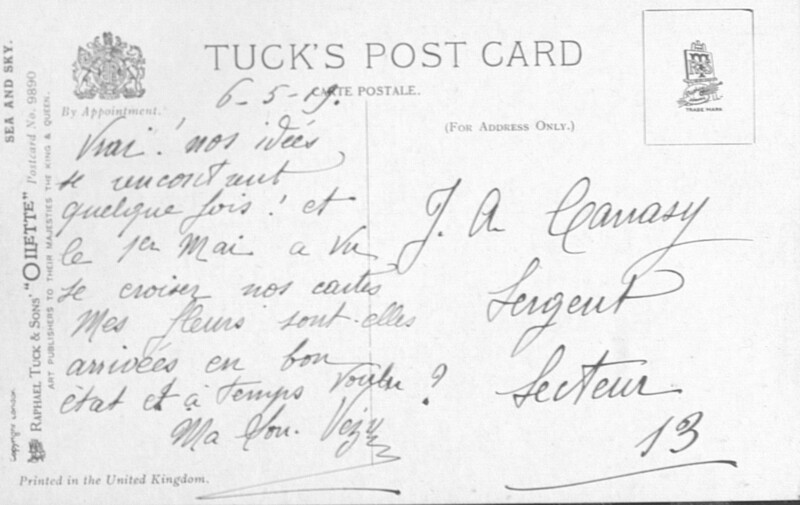 TUCK'S POST CARD
CARTE POSTALE.
By Appointment.
(FOR ADDRESS ONLY.)
TRADE MARK
6-5-19.
Vrai! nos idées
se rencontrent
quelque fois! et
le 1er Mai a vu
se croiser nos cartes
Mes fleurs sont-elles
arrivées en bon
état et à temps voulu?
J. A.
Sergent
Secteur
13
SEA AND SKY.
RAPHAEL TUCK & SONS' "OILETTE" Postcard No. 9890
ART PUBLISHERS TO THEIR MAJESTIES THE KING & QUEEN.
Copyright London
Printed in the United Kingdom.